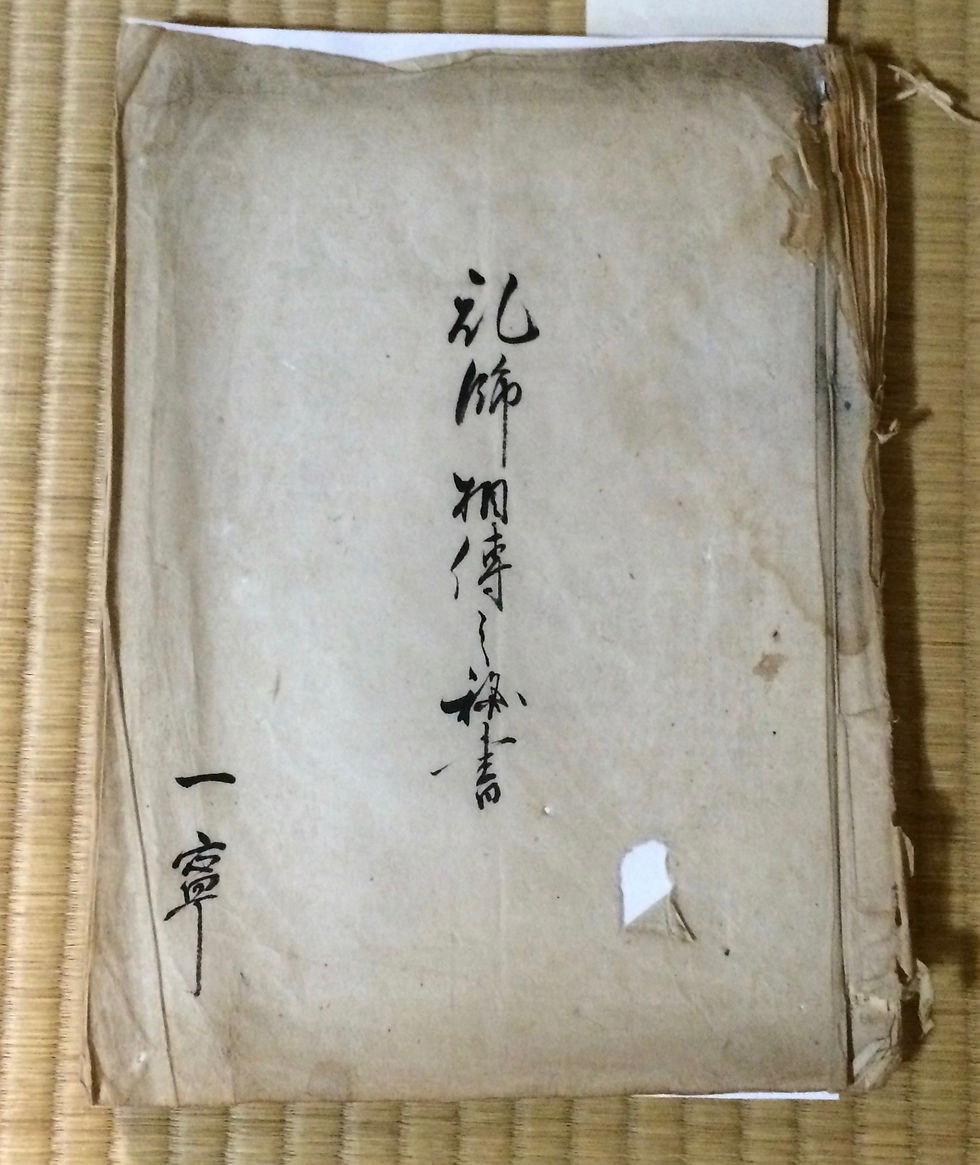 礼師相傳之秘書
一寧